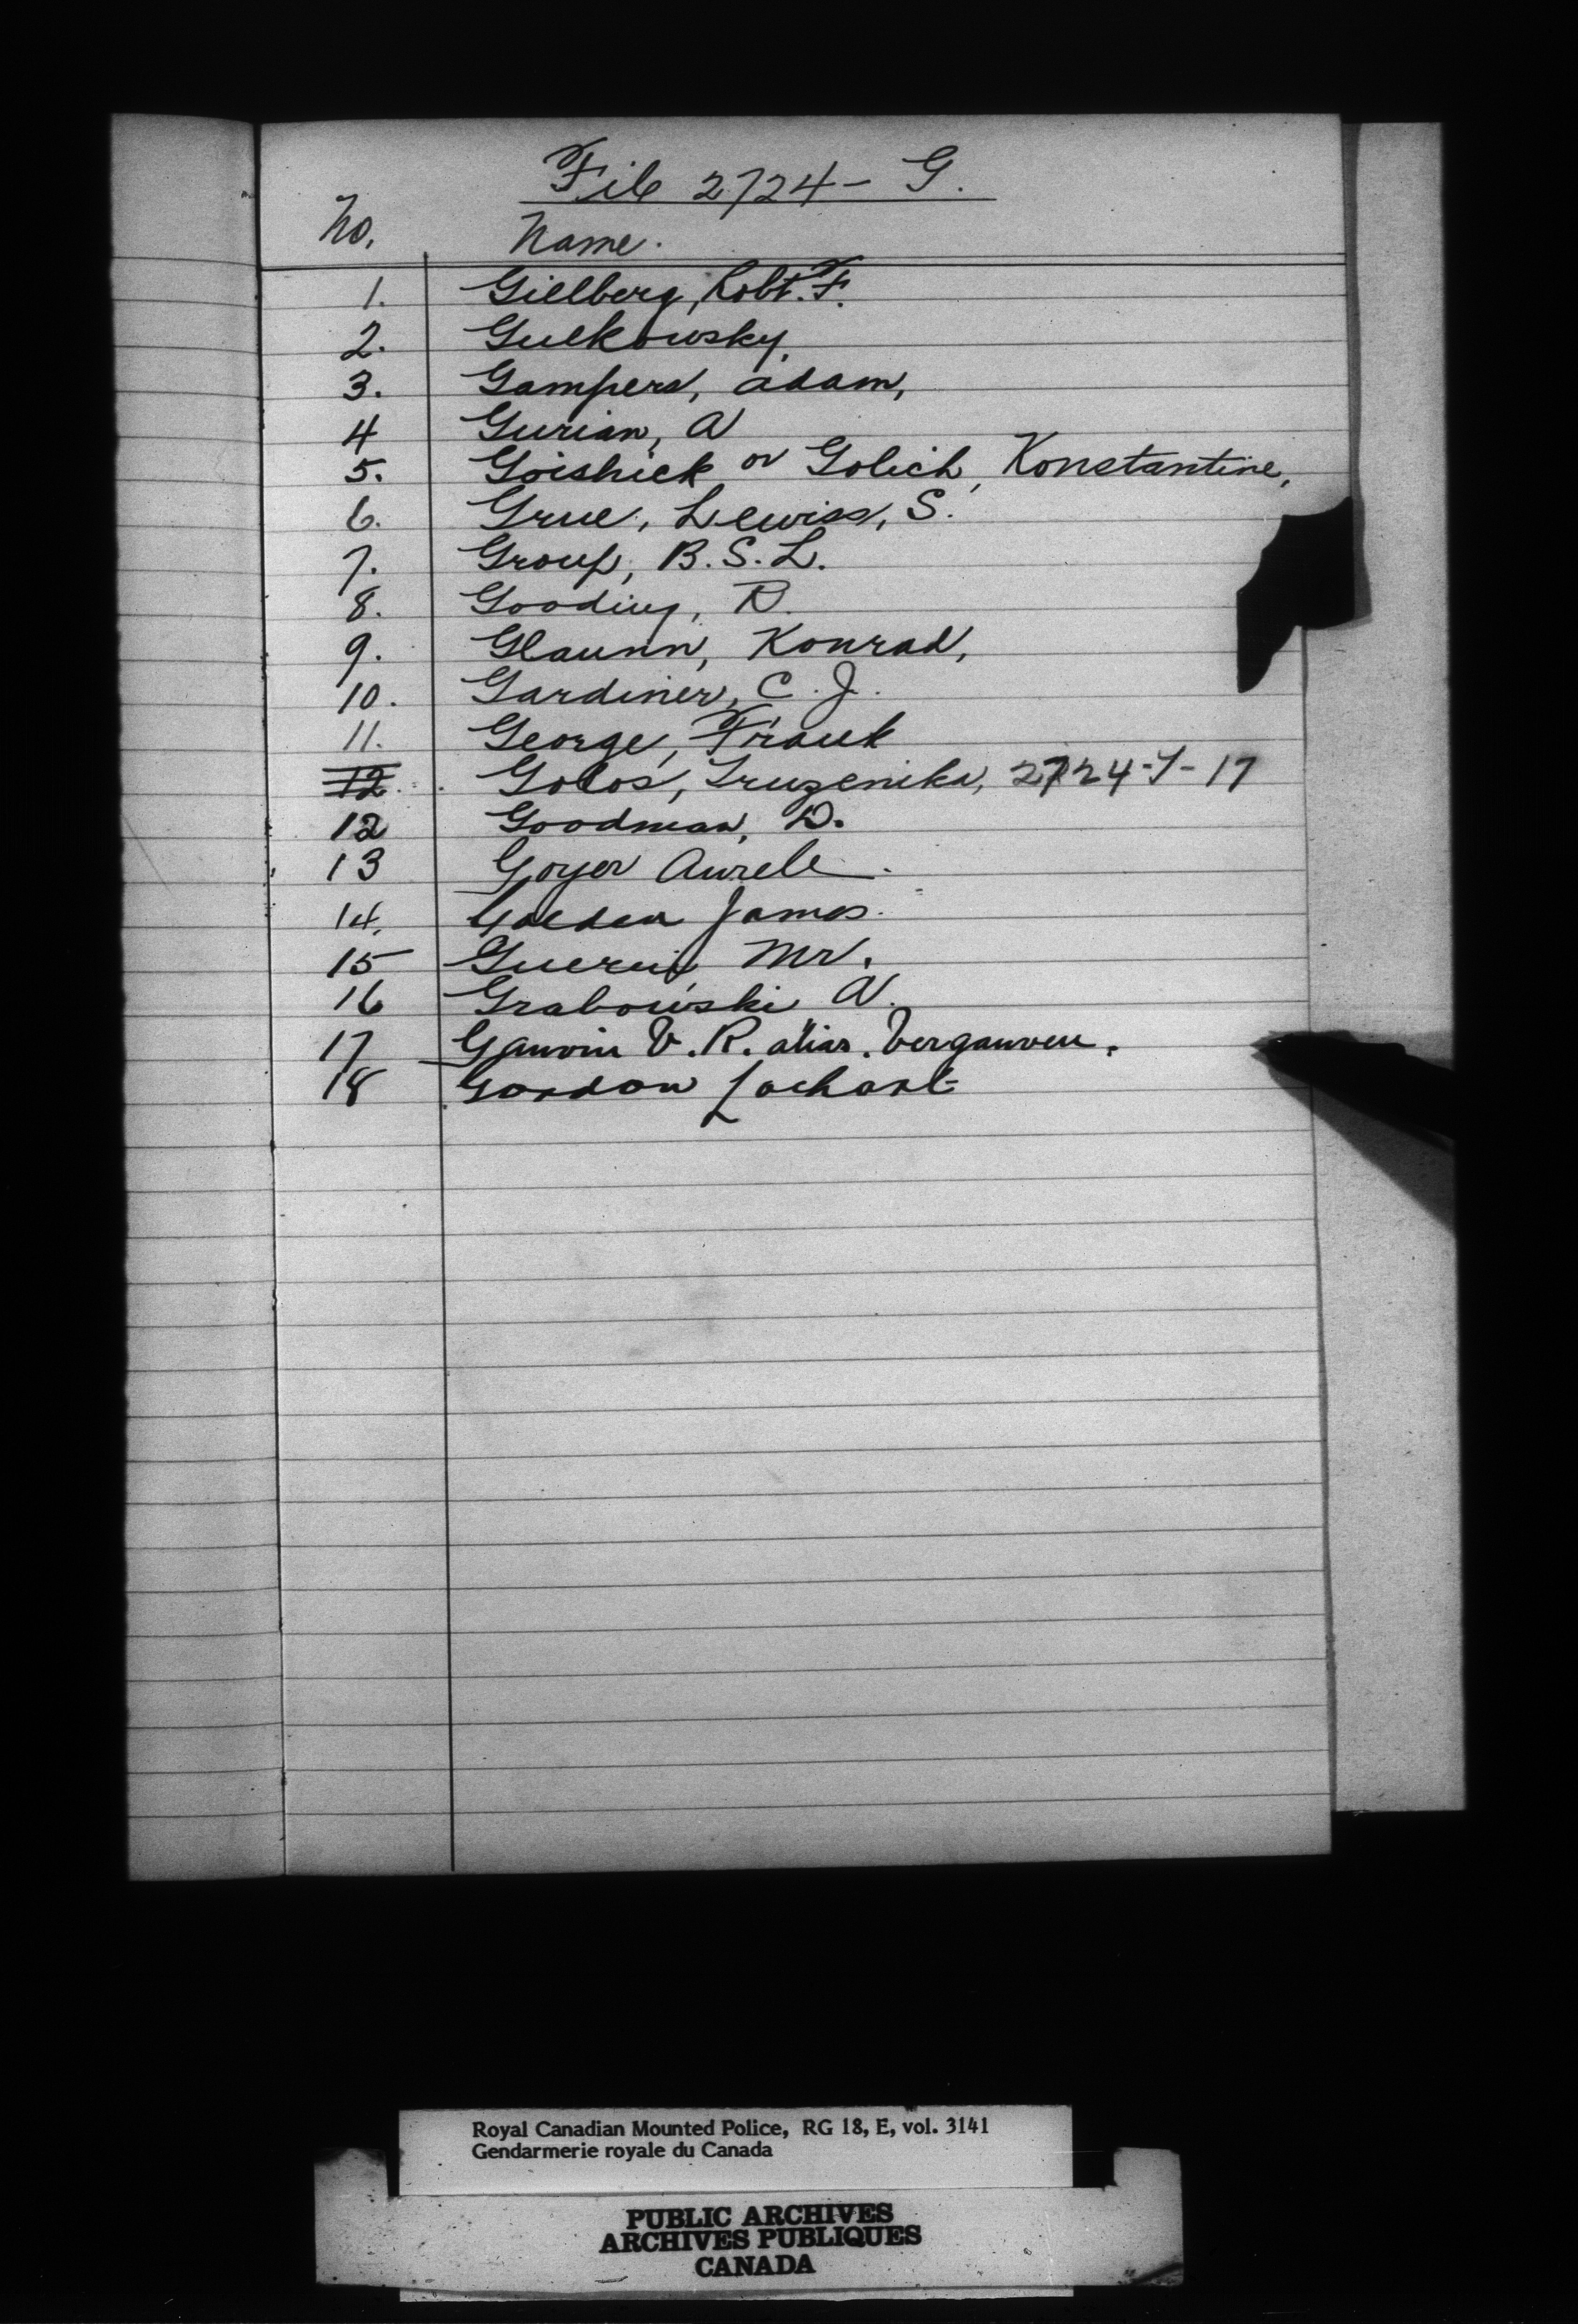 File 2724 - G.
No. Name.
1. Gillberg, Robt. F.
2. Gulkowsky,
3. Gampers, Adam,
4 Gurian, A
5. Goishick or Golich, Konstantine,
6. Grue, Lewiss, S.
7. Group, B.S.L.
8. Gooding, R.
9. Glaunn, Konrad,
10. Gardiner, C. J.
11. George, Frank
12. Golos, Truzenika, 2724-T-17
12 Goodman, D.
13 Goyer Aurele.
14. Golden James.
15 Guerin Mr.
16 Grabowski A.
17 Gauvin V. R. alias. Vergauven.
18 Gordon Lochart
Royal Canadian Mounted Police, RG 18, E, vol. 3141
Gendarmerie royale du Canada
PUBLIC ARCHIVES
ARCHIVES PUBLIQUES
CANADA